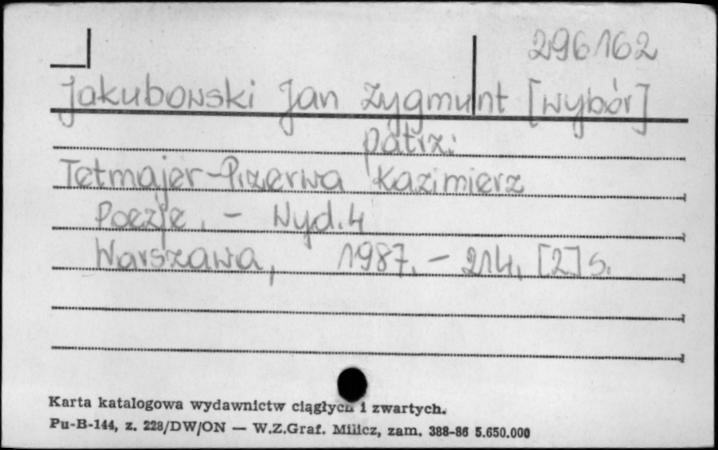 296162
Jakubowski Jan Zygmunt [wybór]
patrz:
Tetmajer-Przerwa Kazimierz
Poezje. - Wyd.4
Warszawa, 1987. - 214, [2] s.
Karta katalogowa wydawnictw ciągłych i zwartych.
Pu-B-144, z. 228/DW/ON — W.Z.Graf. Milicz, zam. 388-86 5.650.000